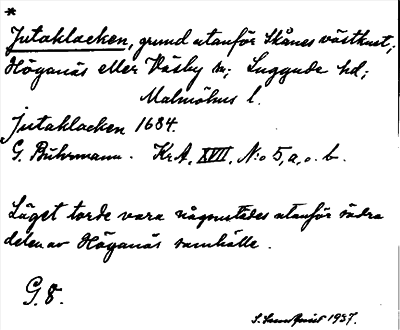 *
Jutaklacken, grund utanför Skånes västkust;
Höganäs eller Väsby sn; Luggude hd;
Malmöhus l.
Jutaklacken 1684.
G. Buhrmann. Kr.A. XVII, N:o 5, a, o. b.
Läget torde vara någonstädes utanför södra
delen av Höganäs samhälle.
G. 8.
1937.